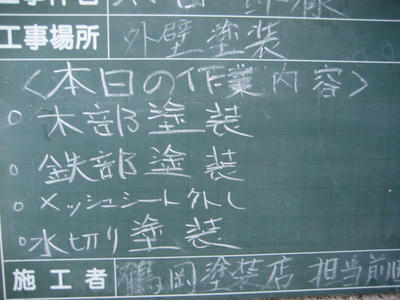 工事場所 外壁塗装
<本日の作業内容>
○木部塗装
○鉄部塗装
○メッシュシート外し
○水切り塗装
施工者 鶴岡塗装店 担当前川